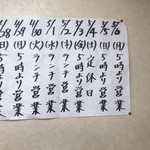 4/28(日)5時より営業
4/29(月)5時より営業
4/30(火)ランチ営業
5/1(水)ランチ営業
5/2(木)ランチ営業
5/3(金)ランチ営業
5/4(土)定休日
5/5(日)5時より営業
5/6(月)5時より営業